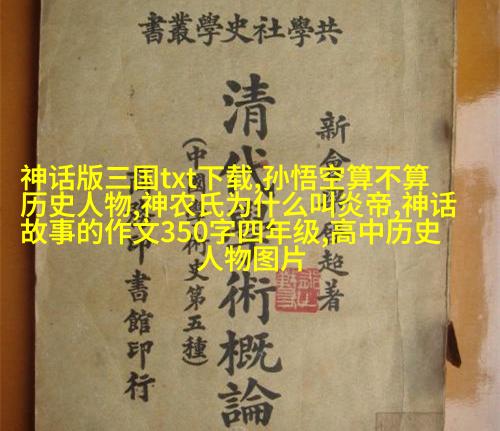 共學社史學叢書
新會梁啓超著
清代學術概論
(中國學術史第五種)
商務印書館印行
神话版三国txt下载,孙悟空算不算
历史人物,神农氏为什么叫炎帝,神话
故事的作文350字四年级,高中历史
人物图片